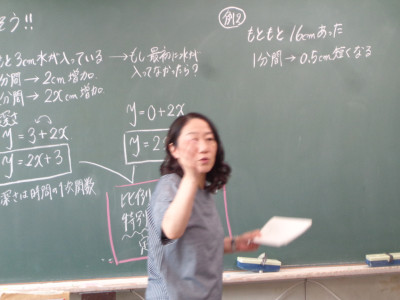 そう!!
と3cm水が入っている
分間→2cm増加
分間→2xcm増加
深さ
y=3+2x
y=2x+3
深さは時間の1次関数
→もし最初に水が
入ってなかったら?
y=0+2x
y=2
比例
特別
例2
もともと16cmあった
1分間→0.5cm短くなる